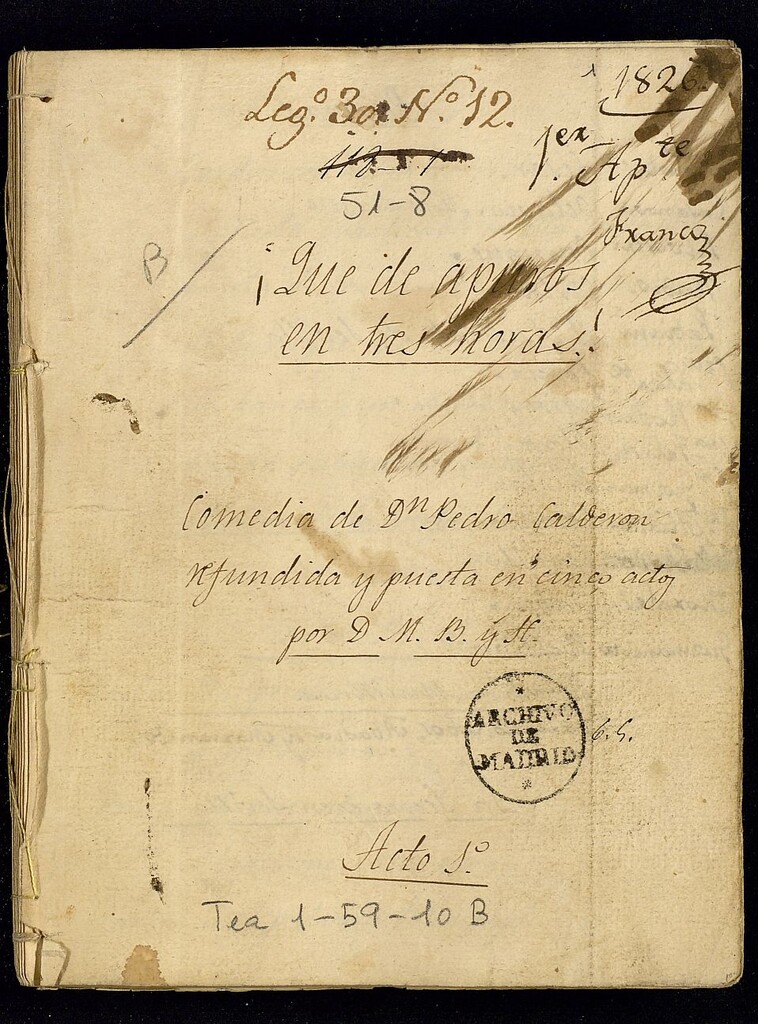 1826.
Leg.º 3º Nº 12.
1.er Ap.te
112-1
51-8
Franco
B
¡Que de apuros
en tres horas!
Comedia de Dn Pedro Calderon
refundida y puesta en cinco actos
por D M. B. y H.
ARCHIVO
DE
MADRID
Acto 1º
Tea 1-59-10 B